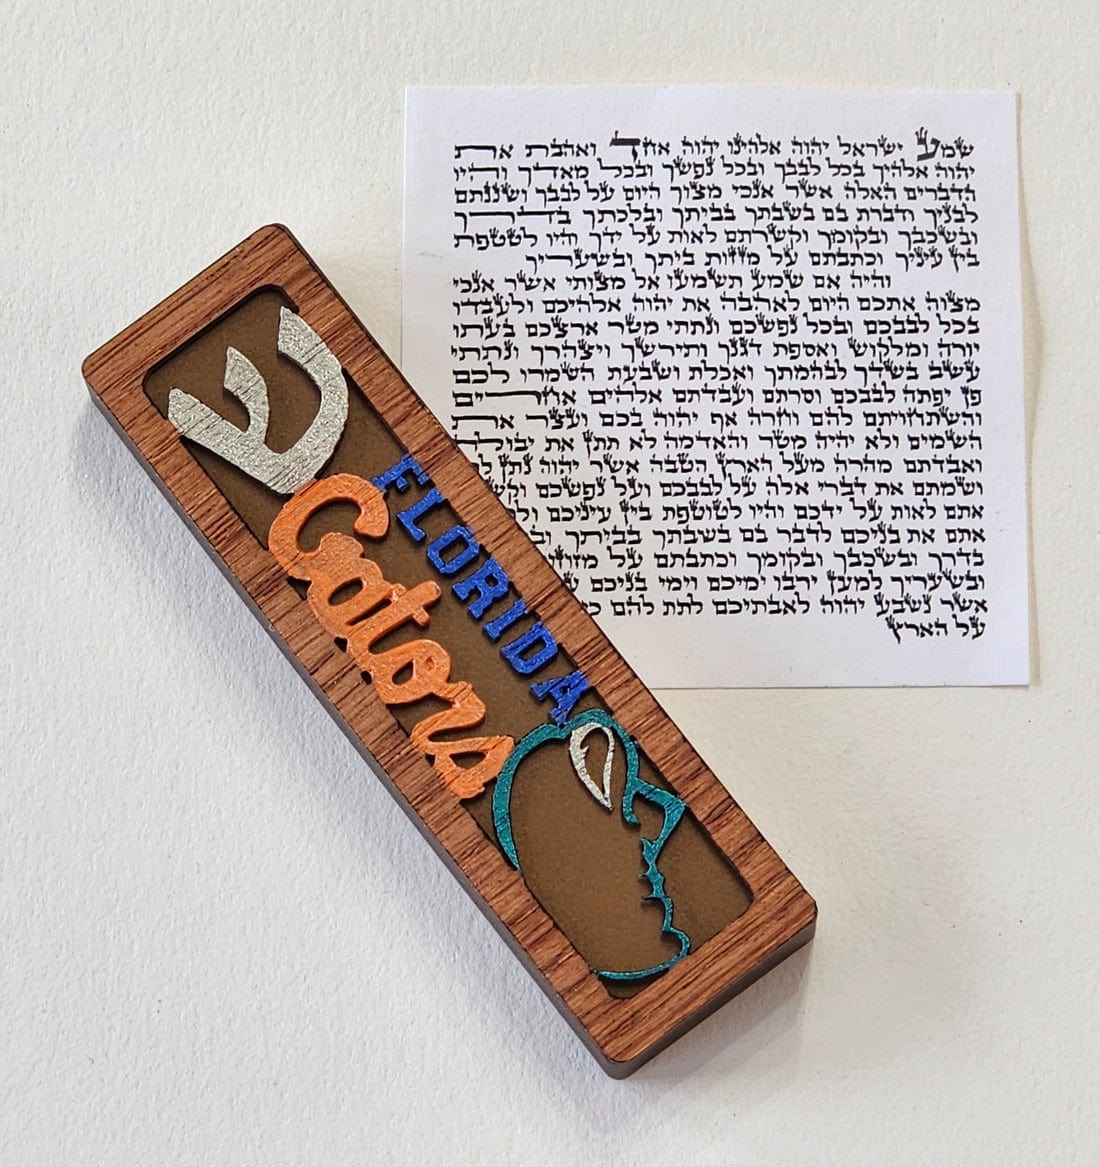 שמע ישראל יהוה אלהינו יהוה אחד ואהבת את
יהוה אלהיך בכל לבבך ובכל נפשך ובכל מאדך והיו
הדברים האלה אשר אנכי מצוך היום על לבבך ושננתם
לבניך ודברת בם בשבתך בביתך ובלכתך בדרך
ובשכבך ובקומך וקשרתם לאות על ידך והיו לטטפת
בין עיניך וכתבתם על מזזות ביתך ובשעריך
והיה אם שמע תשמעו אל מצותי אשר אנכי
מצוה אתכם היום לאהבה את יהוה אלהיכם ולעבדו
בכל לבבכם ובכל נפשכם ונתתי מטר ארצכם בעתו
יורה ומלקוש ואספת דגנך ותירשך ויצהרך ונתתי
עשב בשדך לבהמתך ואכלת ושבעת השמרו לכם
פן יפתה לבבכם וסרתם ועבדתם אלהים אחרים
והשתחויתם להם וחרה אף יהוה בכם ועצר את
השמים ולא יהיה מטר והאדמה לא תתן את יבולה
ואבדתם מהרה מעל הארץ הטבה אשר יהוה נתן
ושמתם את דברי אלה על לבבכם ועל נפשכם
אתם לאות על ידכם והיו לטוטפת בין עיניכם
אתם את בניכם לדבר בם בשבתך בביתך
בדרך ובשכבך ובקומך וכתבתם על
ובשעריך למען ירבו ימיכם וימי בניכם
אשר נשבע יהוה לאבתיכם לתת להם
על הארץ
ש
FLORIDA
Gators